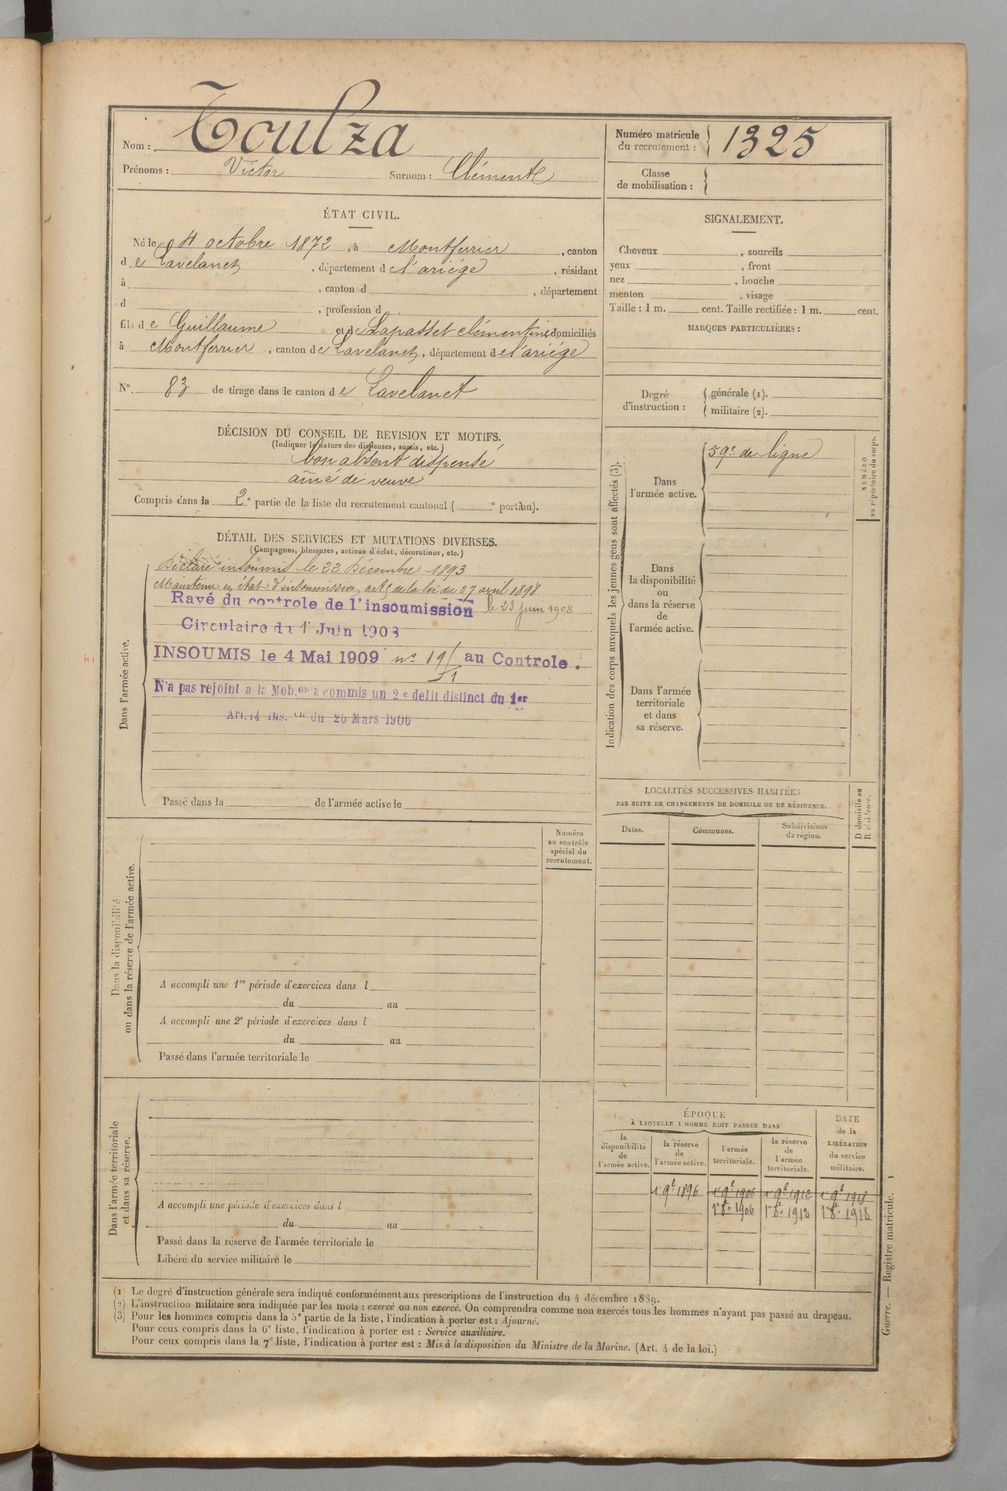 Nom : Toulza
Prénoms : Victor Surnom : Clément
Numéro matricule du recrutement : 1325
Classe de mobilisation :
ÉTAT CIVIL.
Né le 4 octobre 1872, à Montferrier, canton
de Lavelanet, département de l'ariége, résidant
à , canton d , département
d , profession d
fils de Guillaume et de Lapasset clémentine domiciliés
à Montferrier, canton de Lavelanet, département de l'ariége
N° 83 de tirage dans le canton de Lavelanet
DÉCISION DU CONSEIL DE REVISION ET MOTIFS.
(Indiquer la nature des dispenses, sursis, etc.)
bon absent dispensé
aîné de veuve
Compris dans la 2e partie de la liste du recrutement cantonal ( e portion).
DÉTAIL DES SERVICES ET MUTATIONS DIVERSES.
(Campagnes, blessures, actions d'éclat, décorations, etc.)
Dans l'armée active.
Déclaré insoumis le 22 Decembre 1893
Maintenu en état d'insoumission, de la loi du 27 avril 1898
Rayé du controle de l'insoumission le 23 juin 1908
Circulaire du 1 Juin 1908
INSOUMIS le 4 Mai 1909 n° 19 au Controle.
N'a pas rejoint a la Mob.on a commis un 2e delit distinct du 1er
Art. 14 Ins.on du 20 Mars 1906
Passé dans la de l'armée active le
Dans la disponibilité ou dans la réserve de l'armée active.
Numéro au contrôle spécial du recrutement.
A accompli une 1re période d'exercices dans l
du au
A accompli une 2e période d'exercices dans l
du au
Passé dans l'armée territoriale le
Dans l'armée territoriale et dans sa réserve.
A accompli une période d'exercices dans l
du au
Passé dans la réserve de l'armée territoriale le
Libéré du service militaire le
SIGNALEMENT.
Cheveux , sourcils
yeux , front
nez , bouche
menton , visage
Taille : 1 m. cent. Taille rectifiée : 1 m. cent.
MARQUES PARTICULIÈRES :
Degré d'instruction : générale (1).
militaire (2).
Indication des corps auxquels les jeunes gens sont affectés (3).
NUMÉRO au répertoire du corps.
Dans l'armée active.
59e de ligne
Dans la disponibilité ou dans la réserve de l'armée active.
Dans l'armée territoriale et dans sa réserve.
LOCALITÉS SUCCESSIVES HABITÉES
PAR SUITE DE CHANGEMENTS DE DOMICILE OU DE RÉSIDENCE.
Dates. Communes. Subdivisions de région. D domicile ou R résidence.
ÉPOQUE
À LAQUELLE L'HOMME DOIT PASSER DANS
la disponibilité de l'armée active. la réserve de l'armée active. l'armée territoriale. la réserve de l'armée territoriale. DATE de la LIBÉRATION du service militaire.
1 9e 1896 1 9e 1906 1 9e 1912 1 9e 1918
1906 1912 1918
(1) Le degré d'instruction générale sera indiqué conformément aux prescriptions de l'instruction du 4 décembre 1889.
(2) L'instruction militaire sera indiquée par les mots : exercé ou non exercé. On comprendra comme non exercés tous les hommes n'ayant pas passé au drapeau.
(3) Pour les hommes compris dans la 5e partie de la liste, l'indication à porter est : Ajourné.
Pour ceux compris dans la 6e liste, l'indication à porter est : Service auxiliaire.
Pour ceux compris dans la 7e liste, l'indication à porter est : Mis à la disposition du Ministre de la Marine. (Art. 4 de la loi.)
Guerre. — Registre matricule. 1